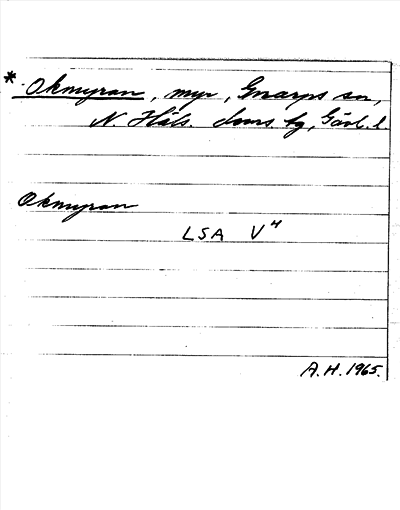 * Okmyran, myr, Gnarps sn,
N. Häls. doms. hg, Gävl. l.
Okmyran
LSA V⁴
A.H. 1965.